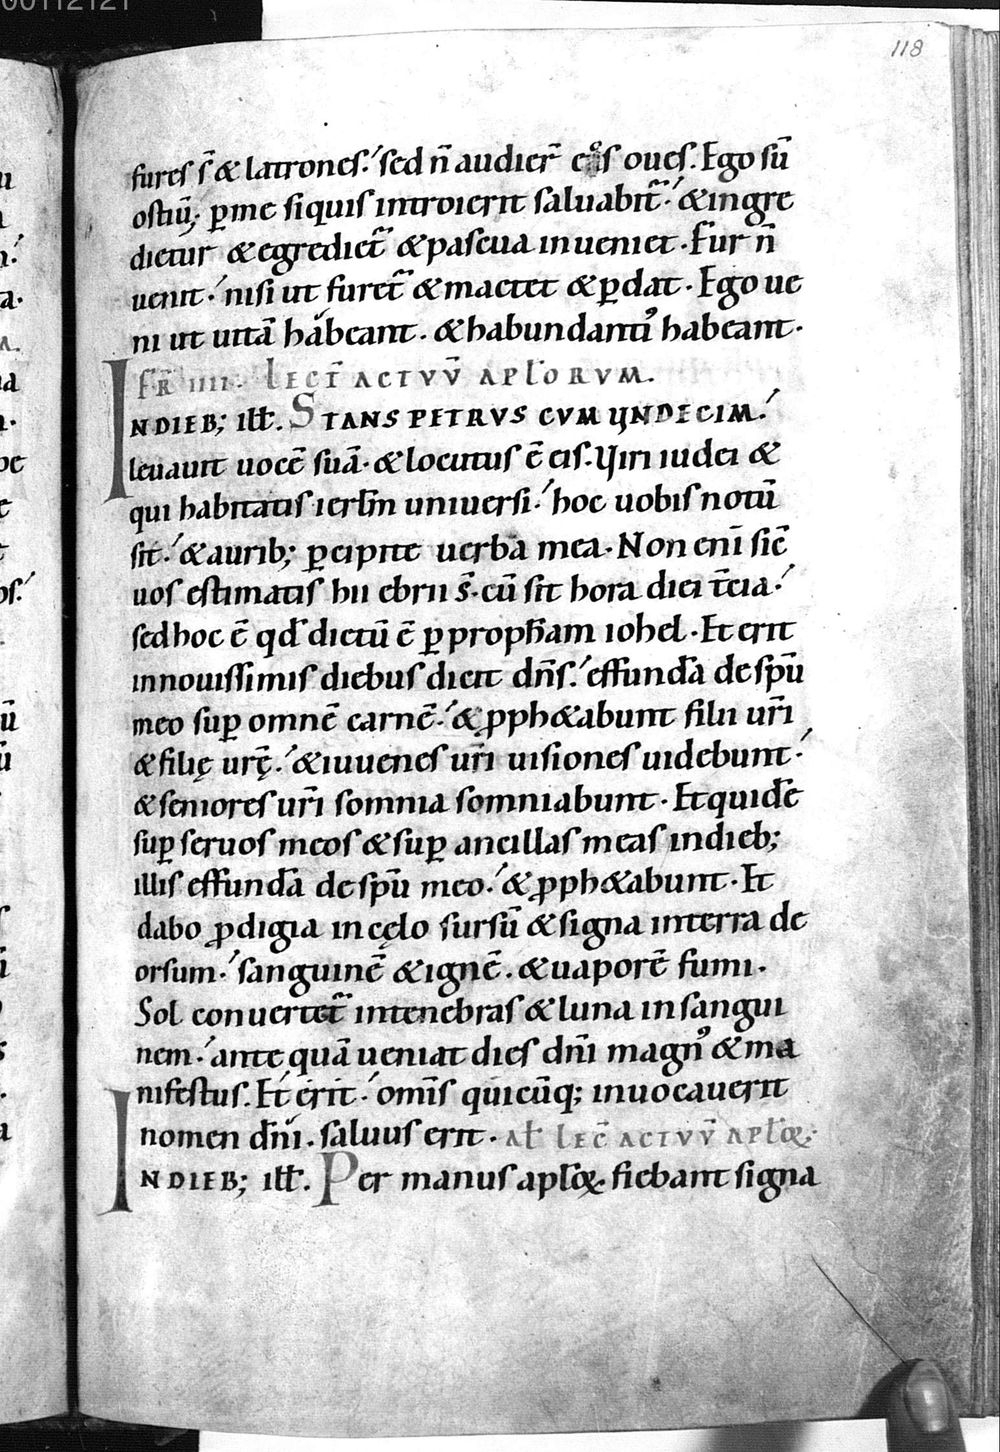 00112121
118
fures s̄ & latrones. sed n̄ audier̄ eos oues. Ego sū
ostiū; ꝑme siquis introierit saluabit᷑. & ingre
dietur & egrediet᷑ & pascua inueniet. Fur n̄
uenit. nisi ut furet᷑ & mactet & ꝑdat. Ego ue
ni ut uitā habeant. & habundantiꝰ habeant.
FR̄ IIII. LECT̄ ACTVV̄ APL̄ORVM.
INDIEB; ill̄. STANS PETRVS CVM VNDECIM.
leuauit uocē suā. & locutus ē eis. Viri iudei &
qui habitatis ierl̄m uniuersi. hoc uobis notū
sit. & aurib; ꝑcipite uerba mea. Non enī sic̄
uos estimatis hii ebrii s̄. cū sit hora diei t̄cia.
sed hoc ē qd̄ dictū ē ꝑ proph̄am iohel. Et erit
innouissimis diebus dicit dn̄s. effundā de sp̄u
meo suꝑ omnē carnē. & ꝓph&abunt filii ur̄i
& filię ur̄ę. & iuuenes ur̄i uisiones uidebunt.
& seniores ur̄i somnia somniabunt. Et quidē
suꝑ seruos meos & suꝑ ancillas meas indieb;
illis effundā de sp̄u meo. & ꝓph&abunt. Et
dabo ꝓdigia in cęlo sursū & signa interra de
orsum. sanguinē & ignē. & uaporē fumi.
Sol conuertet᷑ intenebras & luna insangui
nem. ante quā ueniat dies dn̄i magnꝰ & ma
nifestus. Et erit. omīs quicūq; inuocauerit
nomen dn̄i. saluus erit. AL̄ LEC̄ ACTVV̄ APL̄OꝜ.
INDIEB; ill̄. Per manus apl̄oꝝ. fiebant signa